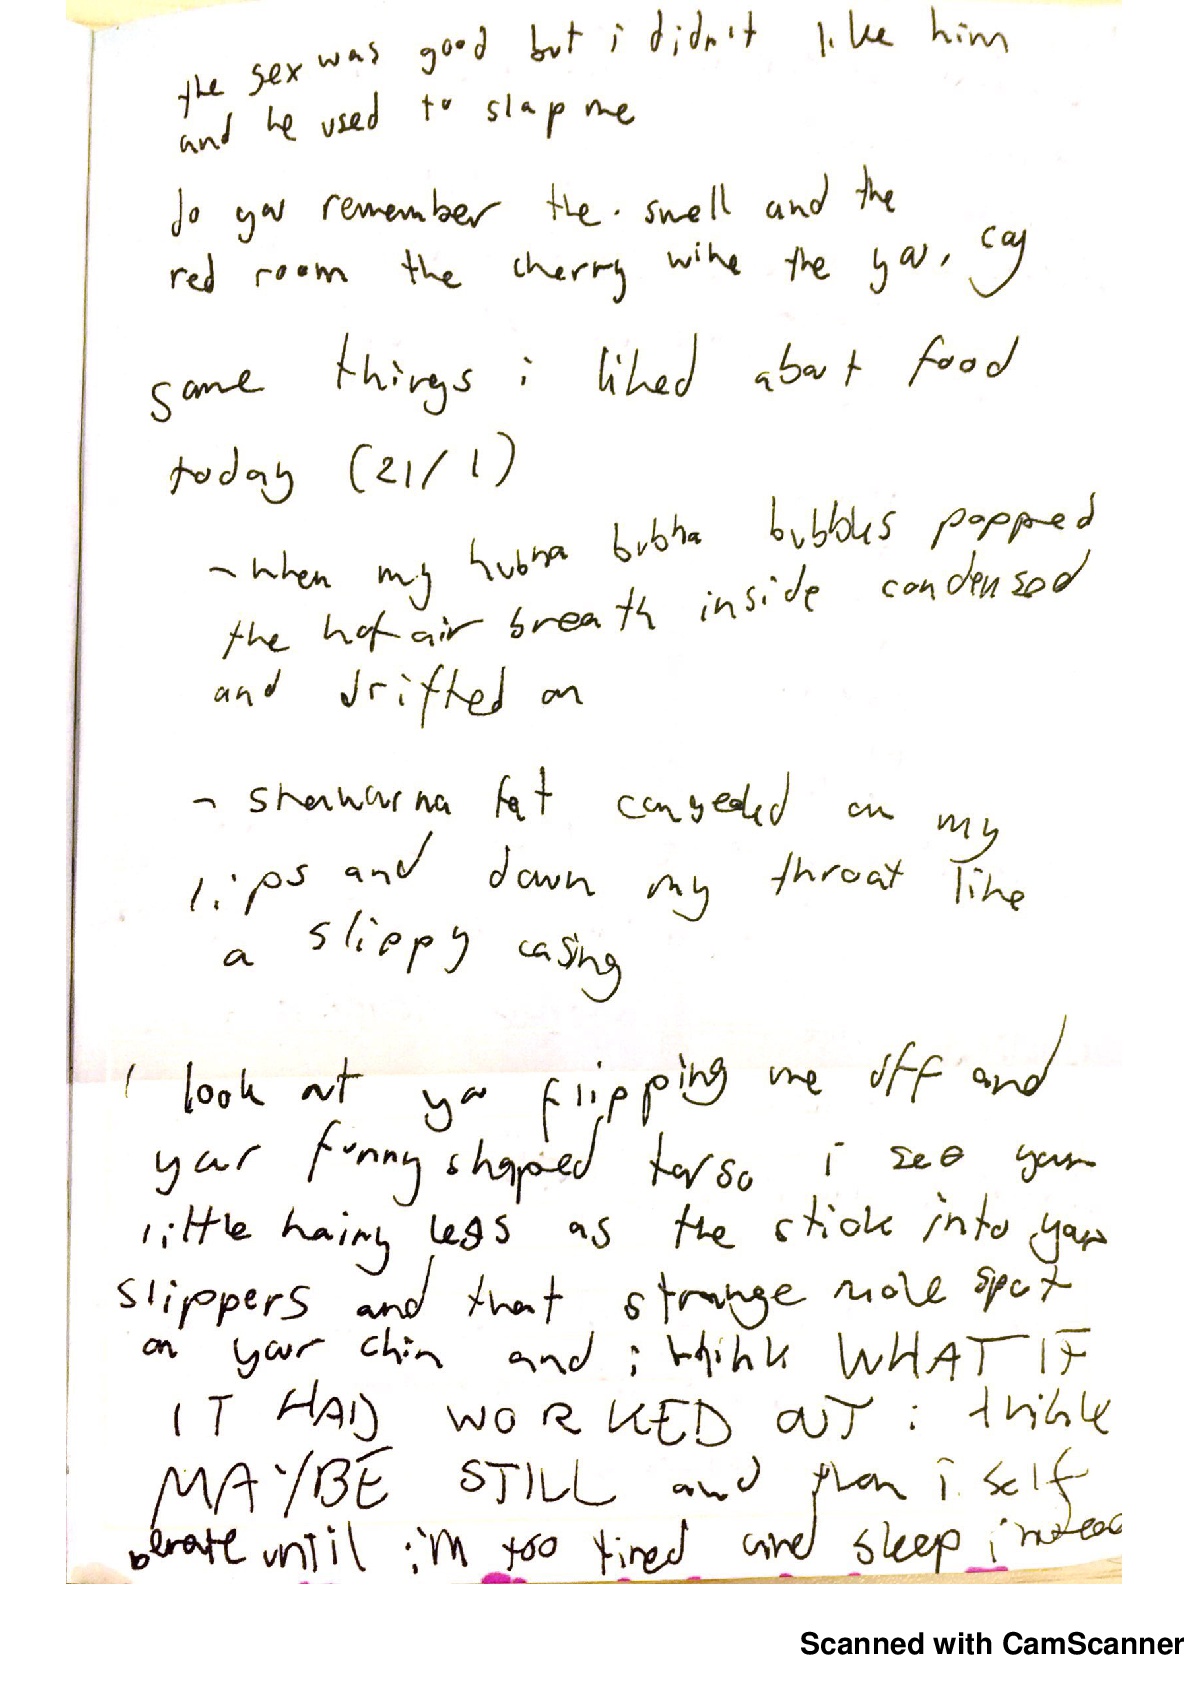 the sex was good but i didn't like him
and he used to slap me
do you remember the smell and the
red room the cherry wine the you, coy
some things i liked about food
today (21/1)
- when my hubba bubba bubbles popped
the hot air breath inside condensed
and drifted on
- shawarma fat congealed on my
lips and down my throat like
a slippy casing
i look at you flipping me off and
your funny shaped torso i see your
little hairy legs as the stick into your
slippers and that strange mole spot
on your chin and i think WHAT IF
IT HAD WORKED OUT i think
MAYBE STILL and then i self
berate until i'm too tired and sleep instead
Scanned with CamScanner